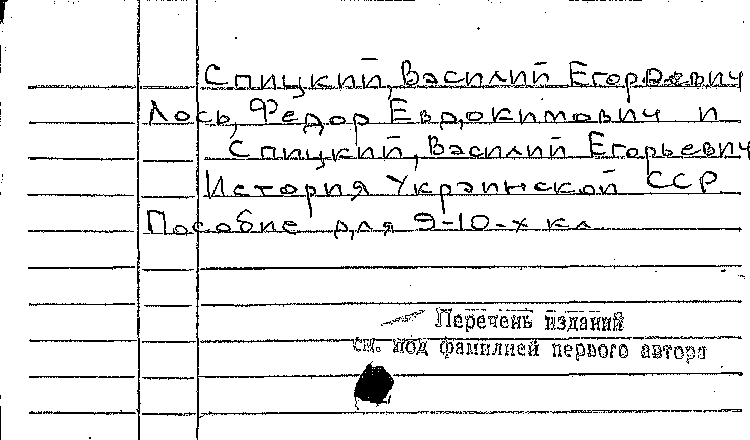 Спицкий, Василий Егорьевич
Лось, Федор Евдокимович и
Спицкий, Василий Егорьевич
История Украинской ССР
Пособие для 9-10-х кл
Перечень изданий
см. под фамилией первого автора